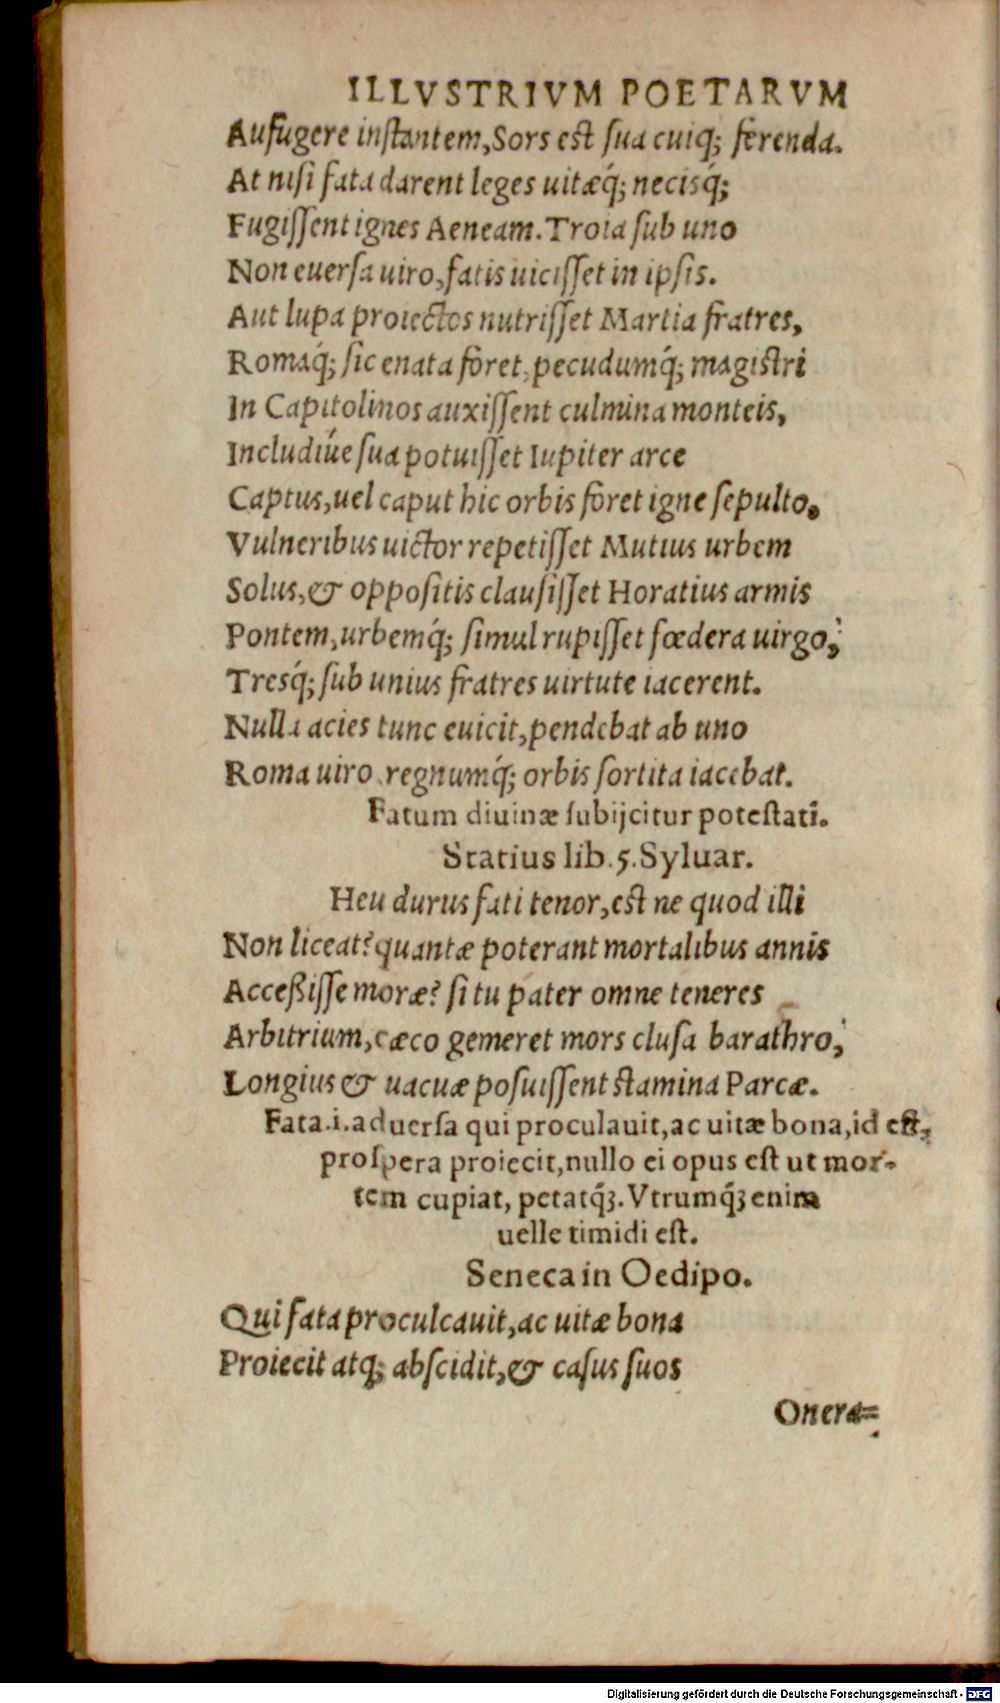 ILLVSTRIVM POETARVM
Aufugere inſtantem, Sors eſt ſua cuiq; ferenda.
At niſi fata darent leges uitæq́; necisq́;
Fugiſſent ignes Aeneam. Troia ſub uno
Non euerſa uiro, fatis uiciſſet in ipſis.
Aut lupa proiectos nutriſſet Martia fratres,
Romaq́; ſic enata foret, pecudumq́; magiſtri
In Capitolinos auxiſſent culmina monteis,
Includiúe ſua potuiſſet Iupiter arce
Captus, uel caput hic orbis foret igne ſepulto.
Vulneribus uictor repetiſſet Mutius urbem
Solus, & oppoſitis clauſiſſet Horatius armis
Pontem, urbemq́; ſimul rupiſſet fœdera uirgo;
Tresq́; ſub unius fratres uirtute iacerent.
Nulla acies tunc euicit, pendebat ab uno
Roma uiro regnumq́; orbis ſortita iacebat.
Fatum diuinæ ſubijcitur poteſtati.
Statius lib. 5. Syluar.
Heu durus fati tenor, eſt ne quod illi
Non liceat? quantæ poterant mortalibus annis
Acceßiſſe moræ? ſi tu pater omne teneres
Arbitrium, cæco gemeret mors cluſa barathro;
Longius & uacuæ poſuiſſent ſtamina Parcæ.
Fata .i. aduerſa qui proculauit, ac uitæ bona, id eſt,
proſpera proiecit, nullo ei opus eſt ut mor-
tem cupiat, petatq́ꝫ. Vtrumq́ꝫ enim
uelle timidi eſt.
Seneca in Oedipo.
Qui fata proculcauit, ac uitæ bona
Proiecit atq; abſcidit, & caſus ſuos
Onera=
Digitalisierung gefördert durch die Deutsche Forschungsgemeinschaft - DFG